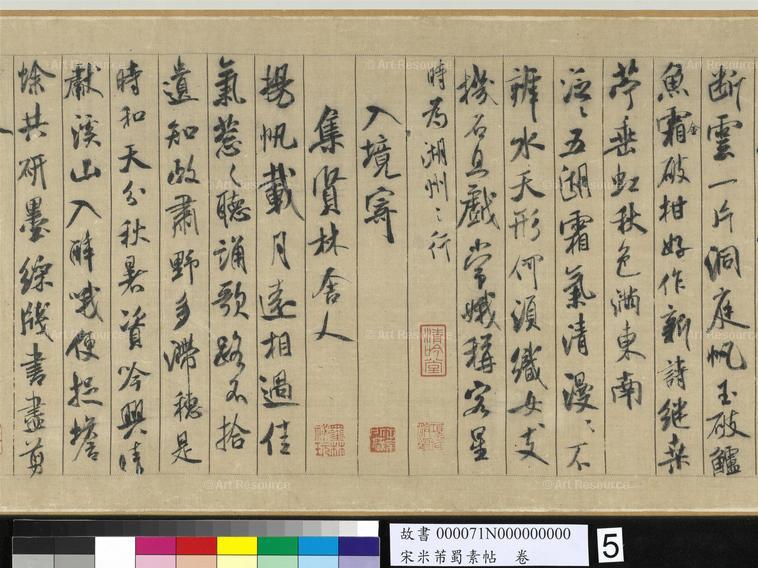 断雲一片洞庭帆玉破鱸
魚霜破柑好作新詩継桑
苧垂虹秋色満東南
泛〻五湖霜氣清漫〻不
辨水天形何須織女支
機石且戲常娥稱客星
時為湖州之行
入境寄
集賢林舍人
揚帆載月遠相過佳
氣葱〻聽誦歌路不拾
遺知政肅野多滯穗是
時和天分秋暑資吟興晴
獻溪山入醉哦便捉蟾
蜍共研墨綵牋書盡剪
清吟堂
© Art Resource
© Art Resource
© Art Resource
© Art Resource
© Art Resource
© Art Resource
© Art Resource
© Art Resource
© Art Resource
故書 000071N000000000
宋米芾蜀素帖 卷
5